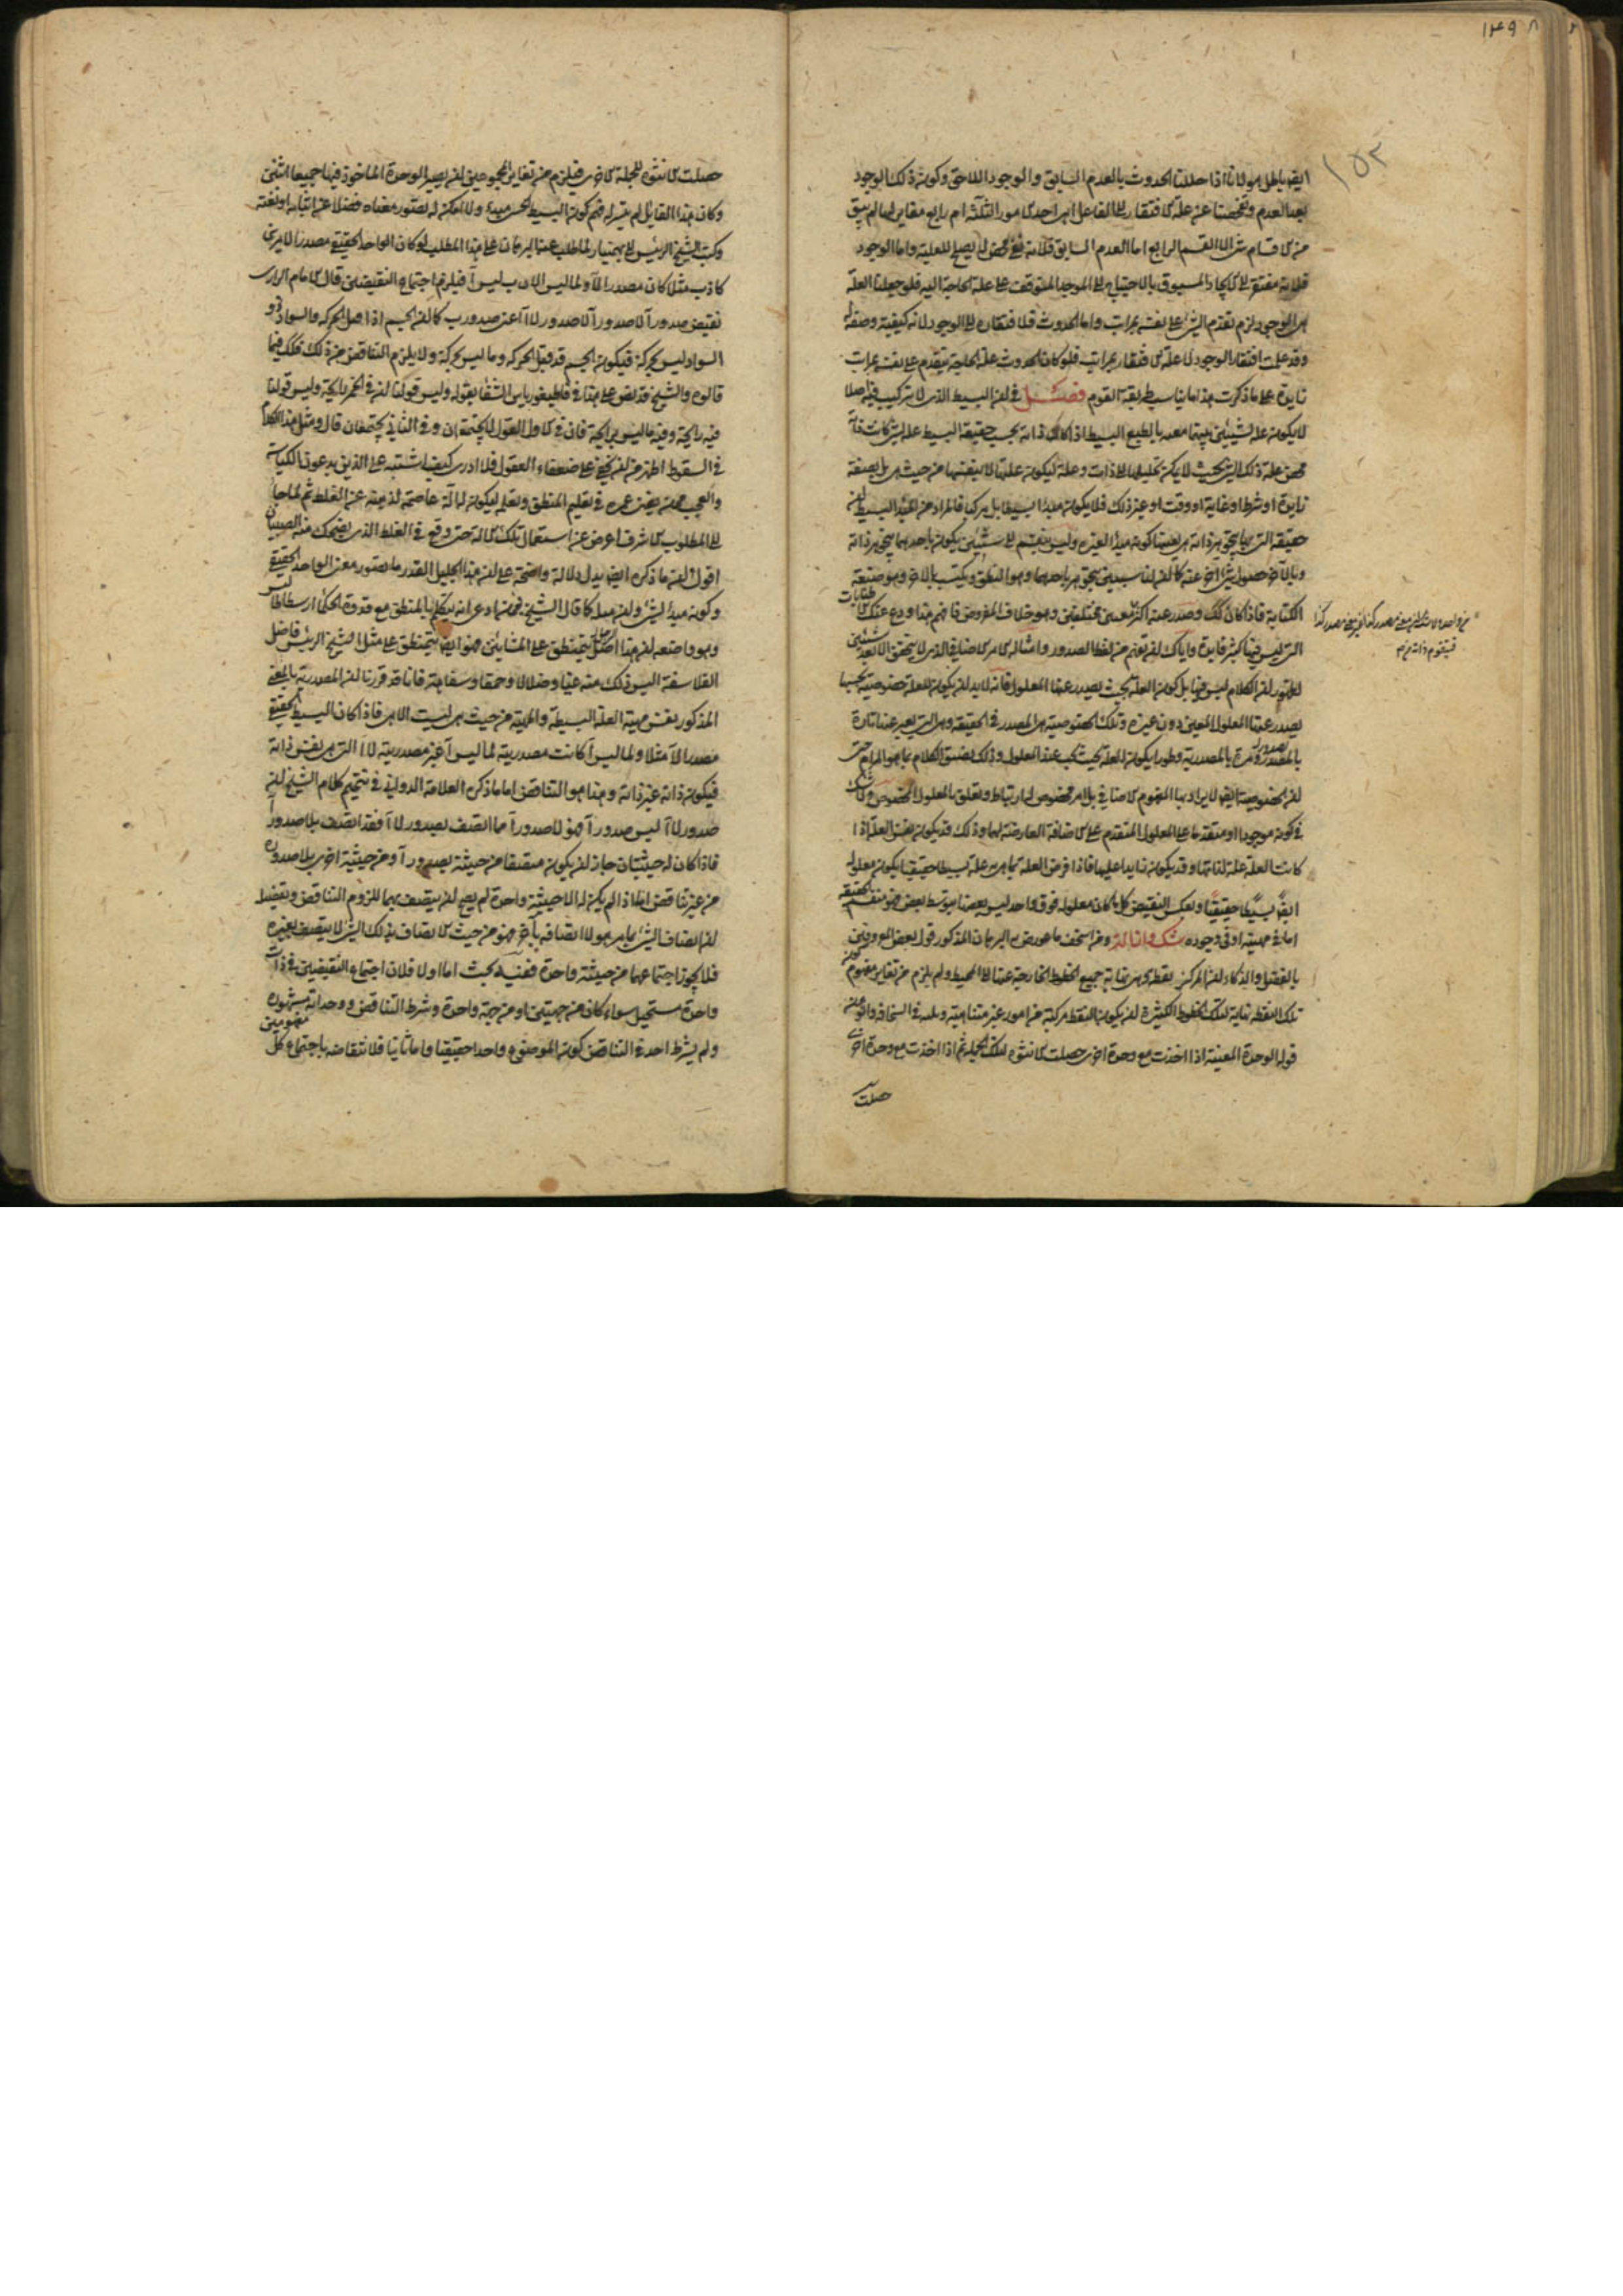 ١٤٩٨
١٥٢
ايضا باطل هو لانا اذا حللنا الحدوث بالعدم السابق والوجود اللاحق وكون ذلك الوجود
بعد العدم وتفحصنا عن علة الافتقار الى الفاعل اهي احد الامور الثلثة ام رابع مغاير لها لم يبق
من الاقسام شئ الا القسم الرابع اما العدم السابق فلانه نفى محض لا يصلح للعلية واما الوجود
فلانه مفتقر الى الايجاد المسبوق بالاحتياج الى الموجد المتوقف على علة الحاجة اليه فلو جعلنا العلة
هى الوجود لزم تقدم الشئ على نفسه بمراتب واما الحدوث فلافتقاره الى الوجود لانه كيفية وصفة له
وقد علمت افتقار الوجود الى علة الافتقار بمراتب فلو كان الحدوث علة الحاجة يتقدم على نفسه بمراتب
زايدة على ما ذكرت هذا ما يناسب طريقة القوم فصل فى ان البسيط الذى لا تركيب فيه اصلا
لا يكون علة لشيئين بينهما معية بالطبع البسيط اذا كان ذاته بحسب حقيقته البسيطة علة لشئ كانت ذاته
محض علة ذلك الشئ بحيث لا يمكن تحليلها الى ذات وعلة ليكون علتها لا بنفسها من حيث هى بل بصفة
زايدة او شرط او غاية او وقت او غير ذلك فلا يكون مبدأ بسيطا بل مركبا فالمراد من المبدأ البسيط ان
حقيقته التى بها يتجوهر ذاته هى بعينها كونه مبدأ لغيره وليس ينقسم الى شيئين يكون باحدهما يتجوهر ذاته
وبالآخر حصول شئ آخر عنه كما ان لنا شيئين نتجوهر باحدهما وهو النطق ونكتب بالآخر وهو صنعة
الكتابة فاذا كان كذلك وصدر عنه اكثر
التى ليس فيها كثير فايدة واياك ان تفهم من لفظ الصدور وامثاله الامر الاضافى الذى لا يتحقق الا بعد شيئين
لظهور ان الكلام ليس فيها بل كون العلة بحيث يصدر عنها المعلول فانه لا بد ان يكون للعلة خصوصية بحسبها
يصدر عنها المعلول المعين دون غيره وتلك الخصوصية هى المصدر فى الحقيقة وهى التى يعبر عنها تارة
بالصدور ومرة بالمصدرية وطورا بكون العلة بحيث يجب عنها المعلول وذلك لضيق الكلام عما هو المرام حتى
ان الخصوصية ايضا لا يراد بها المفهوم الاضافى بل امر مخصوص له ارتباط وتعلق بالمعلول المخصوص ولا شك
فى كونه موجودا ومتقدما على المعلول المتقدم على الاضافة العارضة لهما وذلك قد يكون نفس العلة اذا
كانت العلة علة لذاتها وقد يكون زايدا عليها فاذا فرض العلة بما هى به علة بسيطا حقيقيا يكون معلوله
ايضا بسيطا حقيقيا وبعكس النقيض كل ما كان معلوله فوق واحد ليس بعضها بتوسط بعض فهو منقسم الحقيقة
اما فى مهيته او فى وجوده شك وازالة ومن اسخف ما عورض به البرهان المذكور قول بعض المعروفين
بالفضل والذكاء ان المركز نقطة وهى نهاية جميع الخطوط الخارجة عنها الى المحيط ولم يلزم من تغاير مفهوم كون
تلك النقطة نهاية لتلك الخطوط الكثيرة ان يكون النقطة مركبة من امور غير متناهية ومثله فى السخافة
قوله الوحدة المعينة اذا اخذت مع وحدة اخرى حصلت الاثنوة لتلك الجملة ثم اذا اخذت مع وحدة اخرى
حصلت
حصلت الاثنوة للجملة الاخرى فيلزم من تغاير المجموعين ان يصير الوحدة الماخوذة فيهما جميعا اثنين
وكان هذا القايل لم يتيسر له فهم كون البسيط الحق مبدء ولا امكن له تصور معناه فضلا عن اثباته او نفيه
وكتب الشيخ الرئيس الى بهمنيار لما طلب عنه البرهان على هذا المطلب لو كان الواحد الحقيقى مصدرا لامرين
كآ وب مثلا كان مصدرا لآ ولما ليس آ لان ب ليس آ فيلزم اجتماع النقيضين قال الامام الرازى
نقيض صدور آ لا صدور آ لا صدور لا آ اعنى صدور ب كما ان الجسم اذا قبل الحركة والسواد و
السواد ليس بحركة فيكون الجسم قد قبل الحركة وما ليس بحركة ولا يلزم التناقض من ذلك فكذلك فيما
قالوه والشيخ قد نص على هذا فى قاطيغورياس الشفا بقوله وليس قولنا ان فى الخمر رايحة وليس قولنا
فيه رايحة وفيه ما ليس برايحة فان فى الاول القولان لا يجتمعان وفى الثانى يجتمعان قال ومثل هذا الكلام
فى السقوط اظهر من ان يخفى على ضعفاء العقول فلا ادرى كيف اشتبه على الذين يدعون الكياسة
والعجب ممن يفنى عمره فى تعليم المنطق وتعلمه ليكون له آلة عاصمة لذهنه عن الغلط ثم لما جاء
الى المطلوب الاشرف اعرض عن استعمال تلك الآلة حتى وقع فى الغلط الذى يضحك منه الصبيان
اقول ان ما ذكره ايضا يدل دلالة واضحة على ان هذا الجليل القدر ما تصور معنى الواحد الحقيقى
وكونه مبدأ لشئ وان مثله كما قال الشيخ فيمن ادعى انه يتكلم بالمنطق مع قدوة الحكماء ارسطاطاليس
وهو واضعه ان هذا الرجل يتمنطق على المشائين فهو ايضا يتمنطق على مثل الشيخ الرئيس فاضل
الفلاسفة اليس ذلك منه غيا وضلالا وحمقا وسفاهة فانا قد قررنا ان المصدرية بالمعنى
المذكور نفس مهية العلة البسيطة والمهية من حيث هى ليست الا هى فاذا كان البسيط الحقيقى
مصدرا لآ مثلا ولما ليس آ كانت مصدرية لما ليس آ غير مصدرية لآ التى هى نفس ذاته
فيكون ذاته غير ذاته وهذا هو التناقض اما ما ذكره العلامة الدوانى فى تتميم كلام الشيخ ان
صدور لا آ ليس صدور آ فهو لا صدور آ فما اتصف بصدور لا آ فقد اتصف بلا صدور آ
فاذا كان له حيثيتان جاز ان يكون متصفا من حيثية بصدور آ ومن حيثية اخرى بلا صدوره
من غير تناقض اما اذا لم يكن له الا حيثية واحدة لم يصح ان يتصف بهما للزوم التناقض وتفصيله
ان اتصاف الشئ بامر هو لا اتصافه بآخر فهو من حيث الاتصاف بذلك الشئ لا يتصف بغيره
فلا يجوز اجتماعهما من حيثية واحدة ففيه بحث اما اولا فلان اجتماع النقيضين فى ذات
واحدة مستحيل سواء كان من جهتين او من جهة واحدة وشرط التناقض ووحداته مشهورة
ولم يشرط احد فى التناقض كون الموضوع واحدا حقيقيا واما ثانيا فلانتقاضه باجتماع كل مفهومين